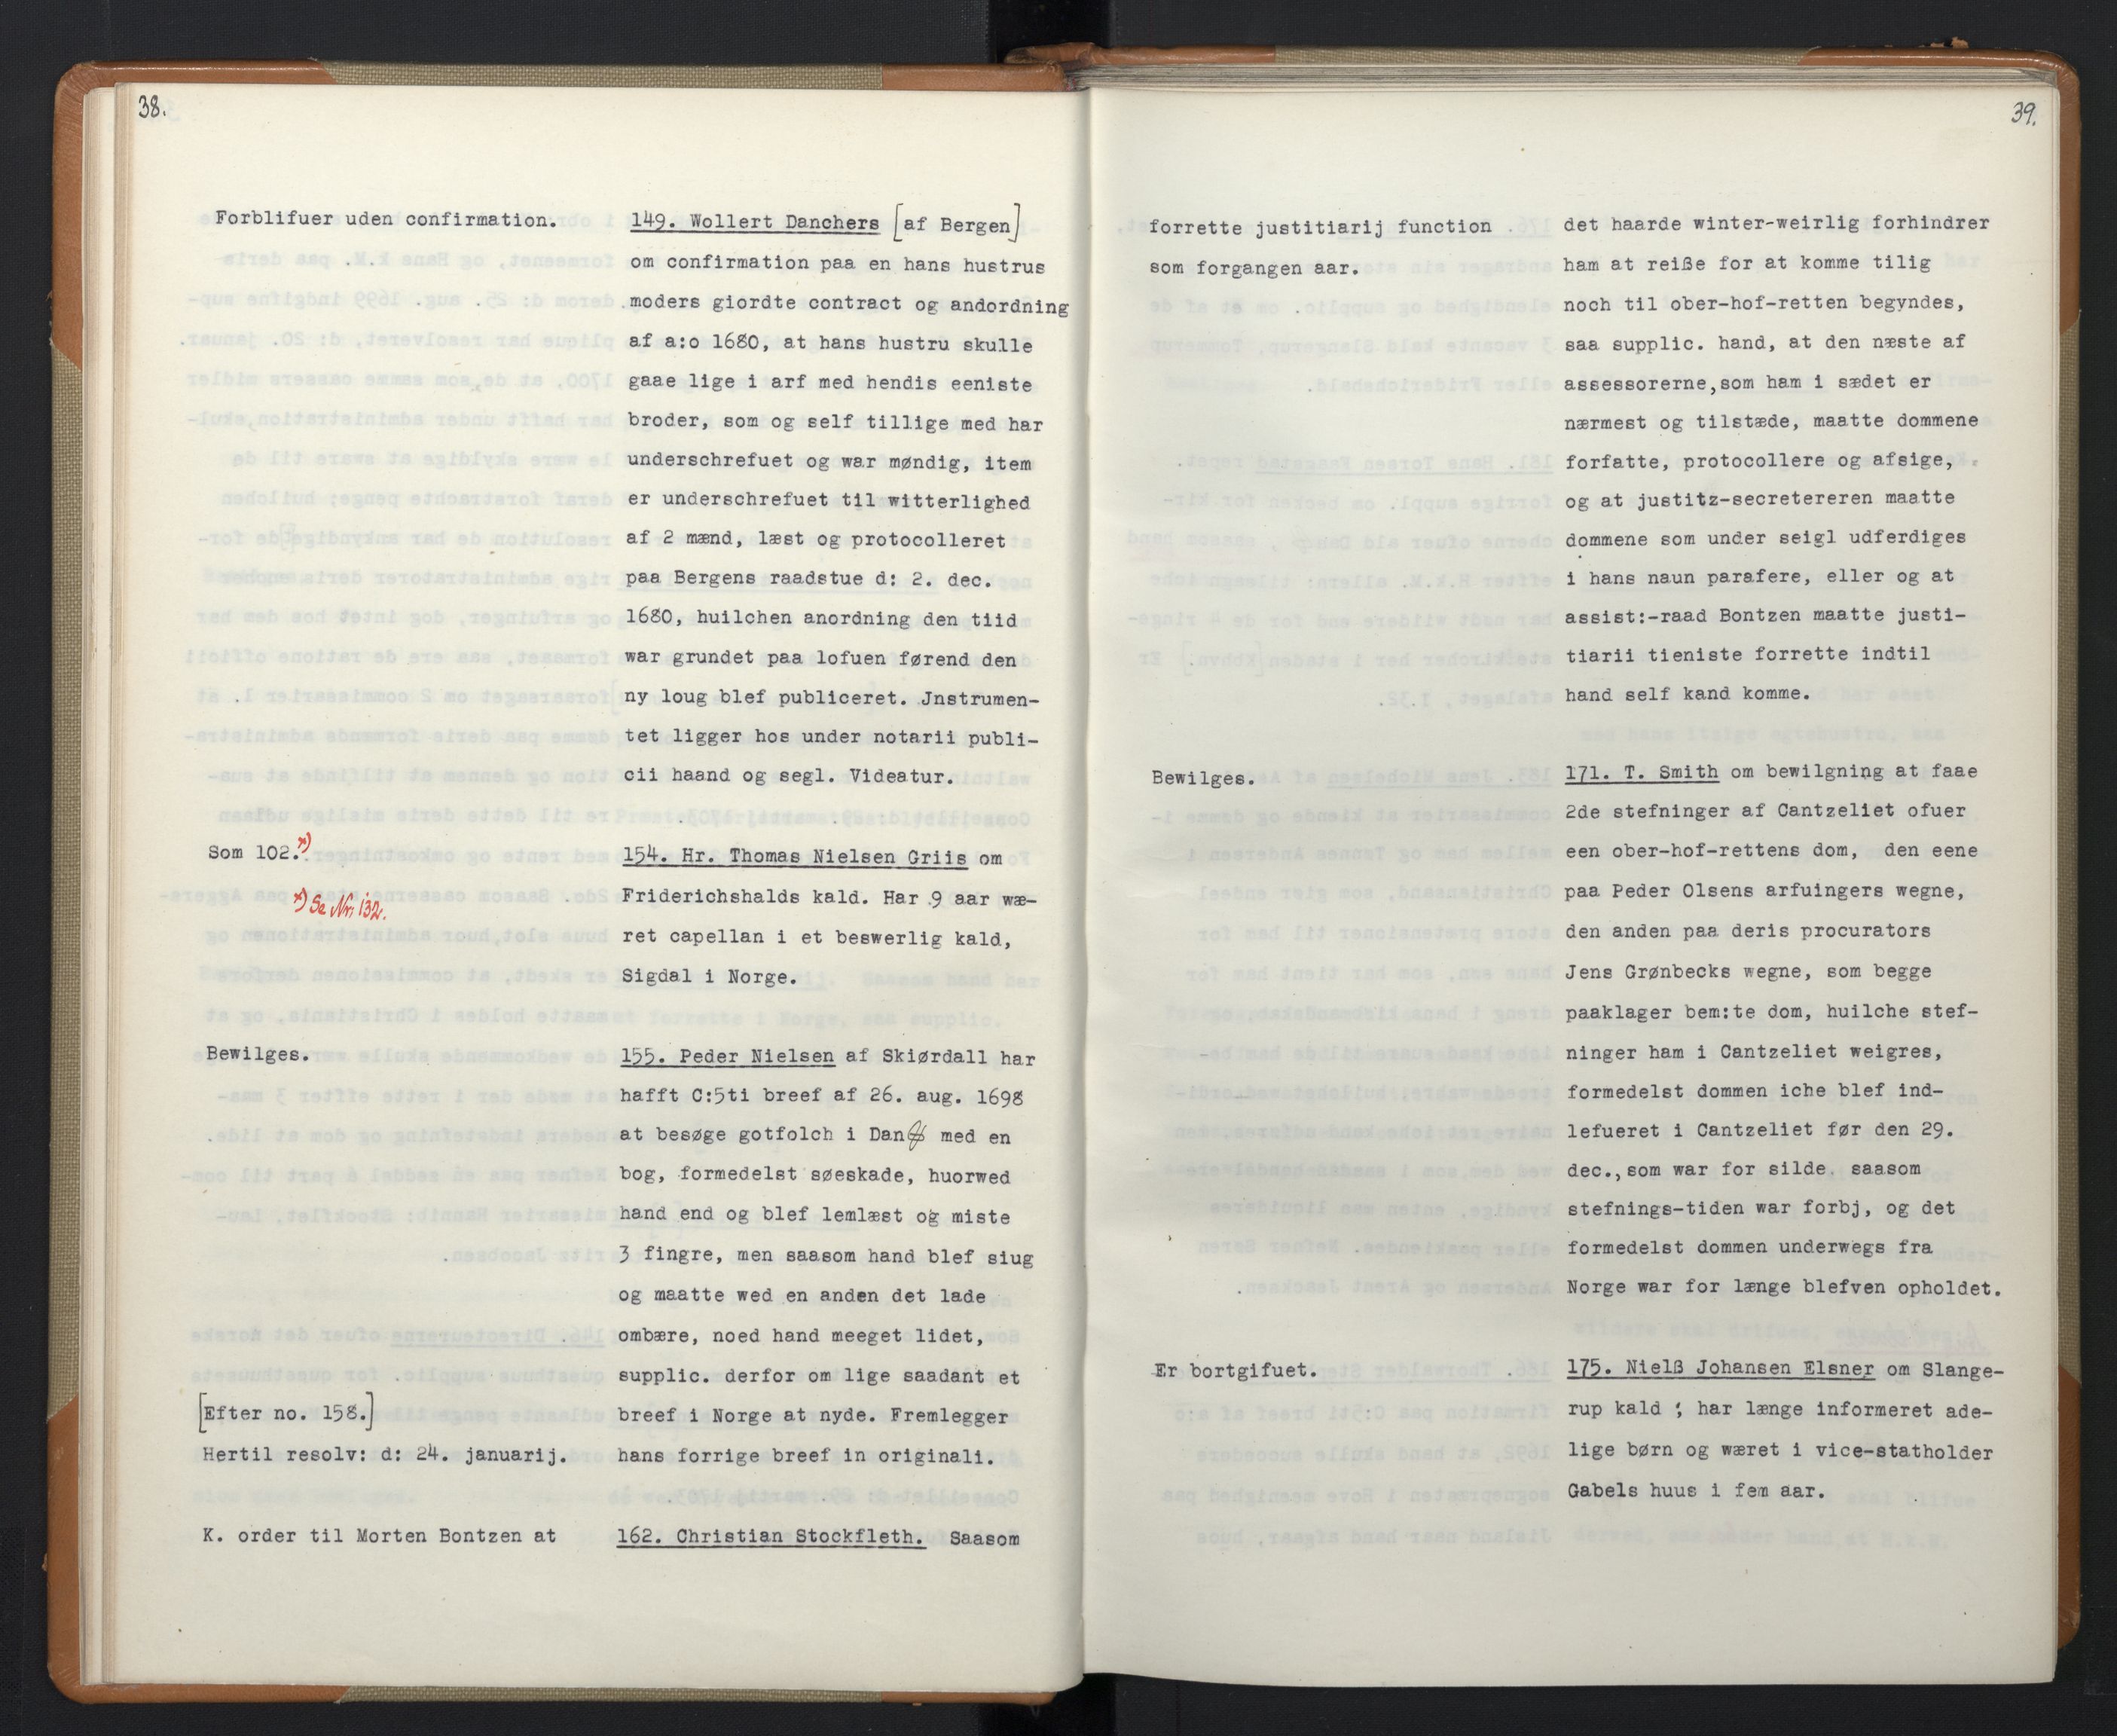 38.
Forblifuer uden confirmation.
149. Wollert Danchers [af Bergen]
om confirmation paa en hans hustrus
moders giordte contract og andordning
af a:o 1680, at hans hustru skulle
gaae lige i arf med hendis eeniste
broder, som og self tillige med har
underschrefuet og war møndig, item
er underschrefuet til witterlighed
af 2 mænd, læst og protocolleret
paa Bergens raadstue d: 2. dec.
1680, huilchen anordning den tiid
war grundet paa lofuen førend den
ny loug blef publiceret. Jnstrumen-
tet ligger hos under notarii publi-
cii haand og segl. Videatur.
Som 102.x)
x) Se Nr: 132.
154. Hr. Thomas Nielsen Griis om
Friderichshalds kald. Har 9 aar wæ-
ret capellan i et beswerlig kald,
Sigdal i Norge.
Bewilges.
155. Peder Nielsen af Skiørdall har
hafft C:5ti breef af 26. aug. 1698
at besøge gotfolch i Dan med en
bog, formedelst søeskade, huorwed
hand end og blef lemlæst og miste
3 fingre, men saasom hand blef siug
og maatte wed en anden det lade
ombære, noed hand meeget lidet,
supplic. derfor om lige saadant et
breef i Norge at nyde. Fremlegger
hans forrige breef in originali.
[Efter no. 158.]
Hertil resolv: d: 24. januarij.
K. order til Morten Bontzen at
162. Christian Stockfleth. Saasom
39.
forrette justitiarij function
som forgangen aar.
det haarde winter-weirlig forhindrer
ham at reiße for at komme tilig
noch til ober-hof-retten begyndes,
saa supplic. hand, at den næste af
assessorerne,som ham i sædet er
nærmest og tilstæde, maatte dommene
forfatte, protocollere og afsige,
og at justitz-secretereren maatte
dommene som under seigl udferdiges
i hans naun parafere, eller og at
assist:-raad Bontzen maatte justi-
tiarii tieniste forrette indtil
hand self kand komme.
Bewilges.
171. T. Smith om bewilgning at faae
2de stefninger af Cantzeliet ofuer
een ober-hof-rettens dom, den eene
paa Peder Olsens arfuingers wegne,
den anden paa deris procurators
Jens Grønbecks wegne, som begge
paaklager bem:te dom, huilche stef-
ninger ham i Cantzeliet weigres,
formedelst dommen iche blef ind-
lefueret i Cantzeliet før den 29.
dec.,som war for silde, saasom
stefnings-tiden war forbj, og det
formedelst dommen underwegs fra
Norge war for længe blefven opholdet.
Er bortgifuet.
175. Nielß Johansen Elsner om Slange-
rup kald ; har længe informeret ade-
lige børn og wæret i vice-statholder
Gabels huus i fem aar.